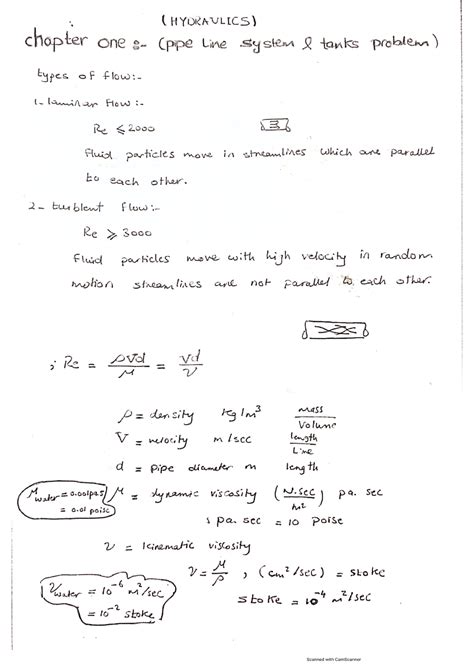 (HYDRAULICS)
chapter one :- (pipe Line system & tanks problem)
types of flow:-
1- laminar flow :-
Re ≤ 2000
Fluid particles move in streamlines which are parallel
to each other.
2- turblent flow:-
Re ≥ 3000
Fluid particles move with high velocity in random
motion streamlines are not parallel to each other.
; Re = ρVd/μ = Vd/ν
ρ = density kg/m³ mass/Volume
V = velocity m/sec length/Line
d = pipe diameter m length
μwater = 0.001pa.s = 0.01 poise
μ = dynamic viscosity (N.sec/m²) pa. sec
1 pa. sec = 10 poise
ν = kinematic viscosity
ν = μ/ρ , (cm²/sec) = stoke
stoke = 10⁻⁴ m²/sec
νwater = 10⁻⁶ m²/sec
= 10⁻² stoke
Scanned with CamScanner